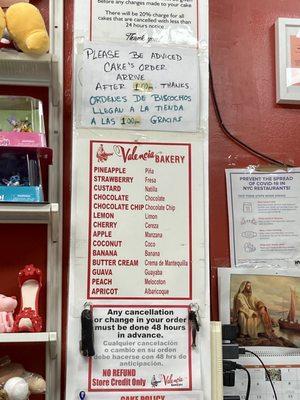 before any changes made to your
There will be 20% charge for all
cakes that are cancelled with less than
24 hours notice
Thank you
PLEASE BE ADVICED
CAKE'S ORDER
ARRIVE
AFTER 1:00pm THANKS
ORDENES DE BISCOCHOS
LLEGAN A LA TIENDA
A LAS 1:00pm GRACIAS
Valencia BAKERY
PINEAPPLE Piña
STRAWBERRY Fresa
CUSTARD Natilla
CHOCOLATE Chocolate
CHOCOLATE CHIP Chocolate Chip
LEMON Limon
CHERRY Cereza
APPLE Manzana
COCONUT Coco
BANANA Banana
BUTTER CREAM Crema de Mantequilla
GUAVA Guayaba
PEACH Melocoton
APRICOT Albaricoque
Any cancellation
or change in your order
must be done 48 hours
in advance.
Cualquier cancelación
o cambio en su orden
debe hacerse con 48 hrs
de anticipación
NO REFUND
Store Credit Only
Valencia
BAKERY
CAKE POLICY
PREVENT THE SPREAD
OF COVID-19 IN
NYC RESTAURANTS